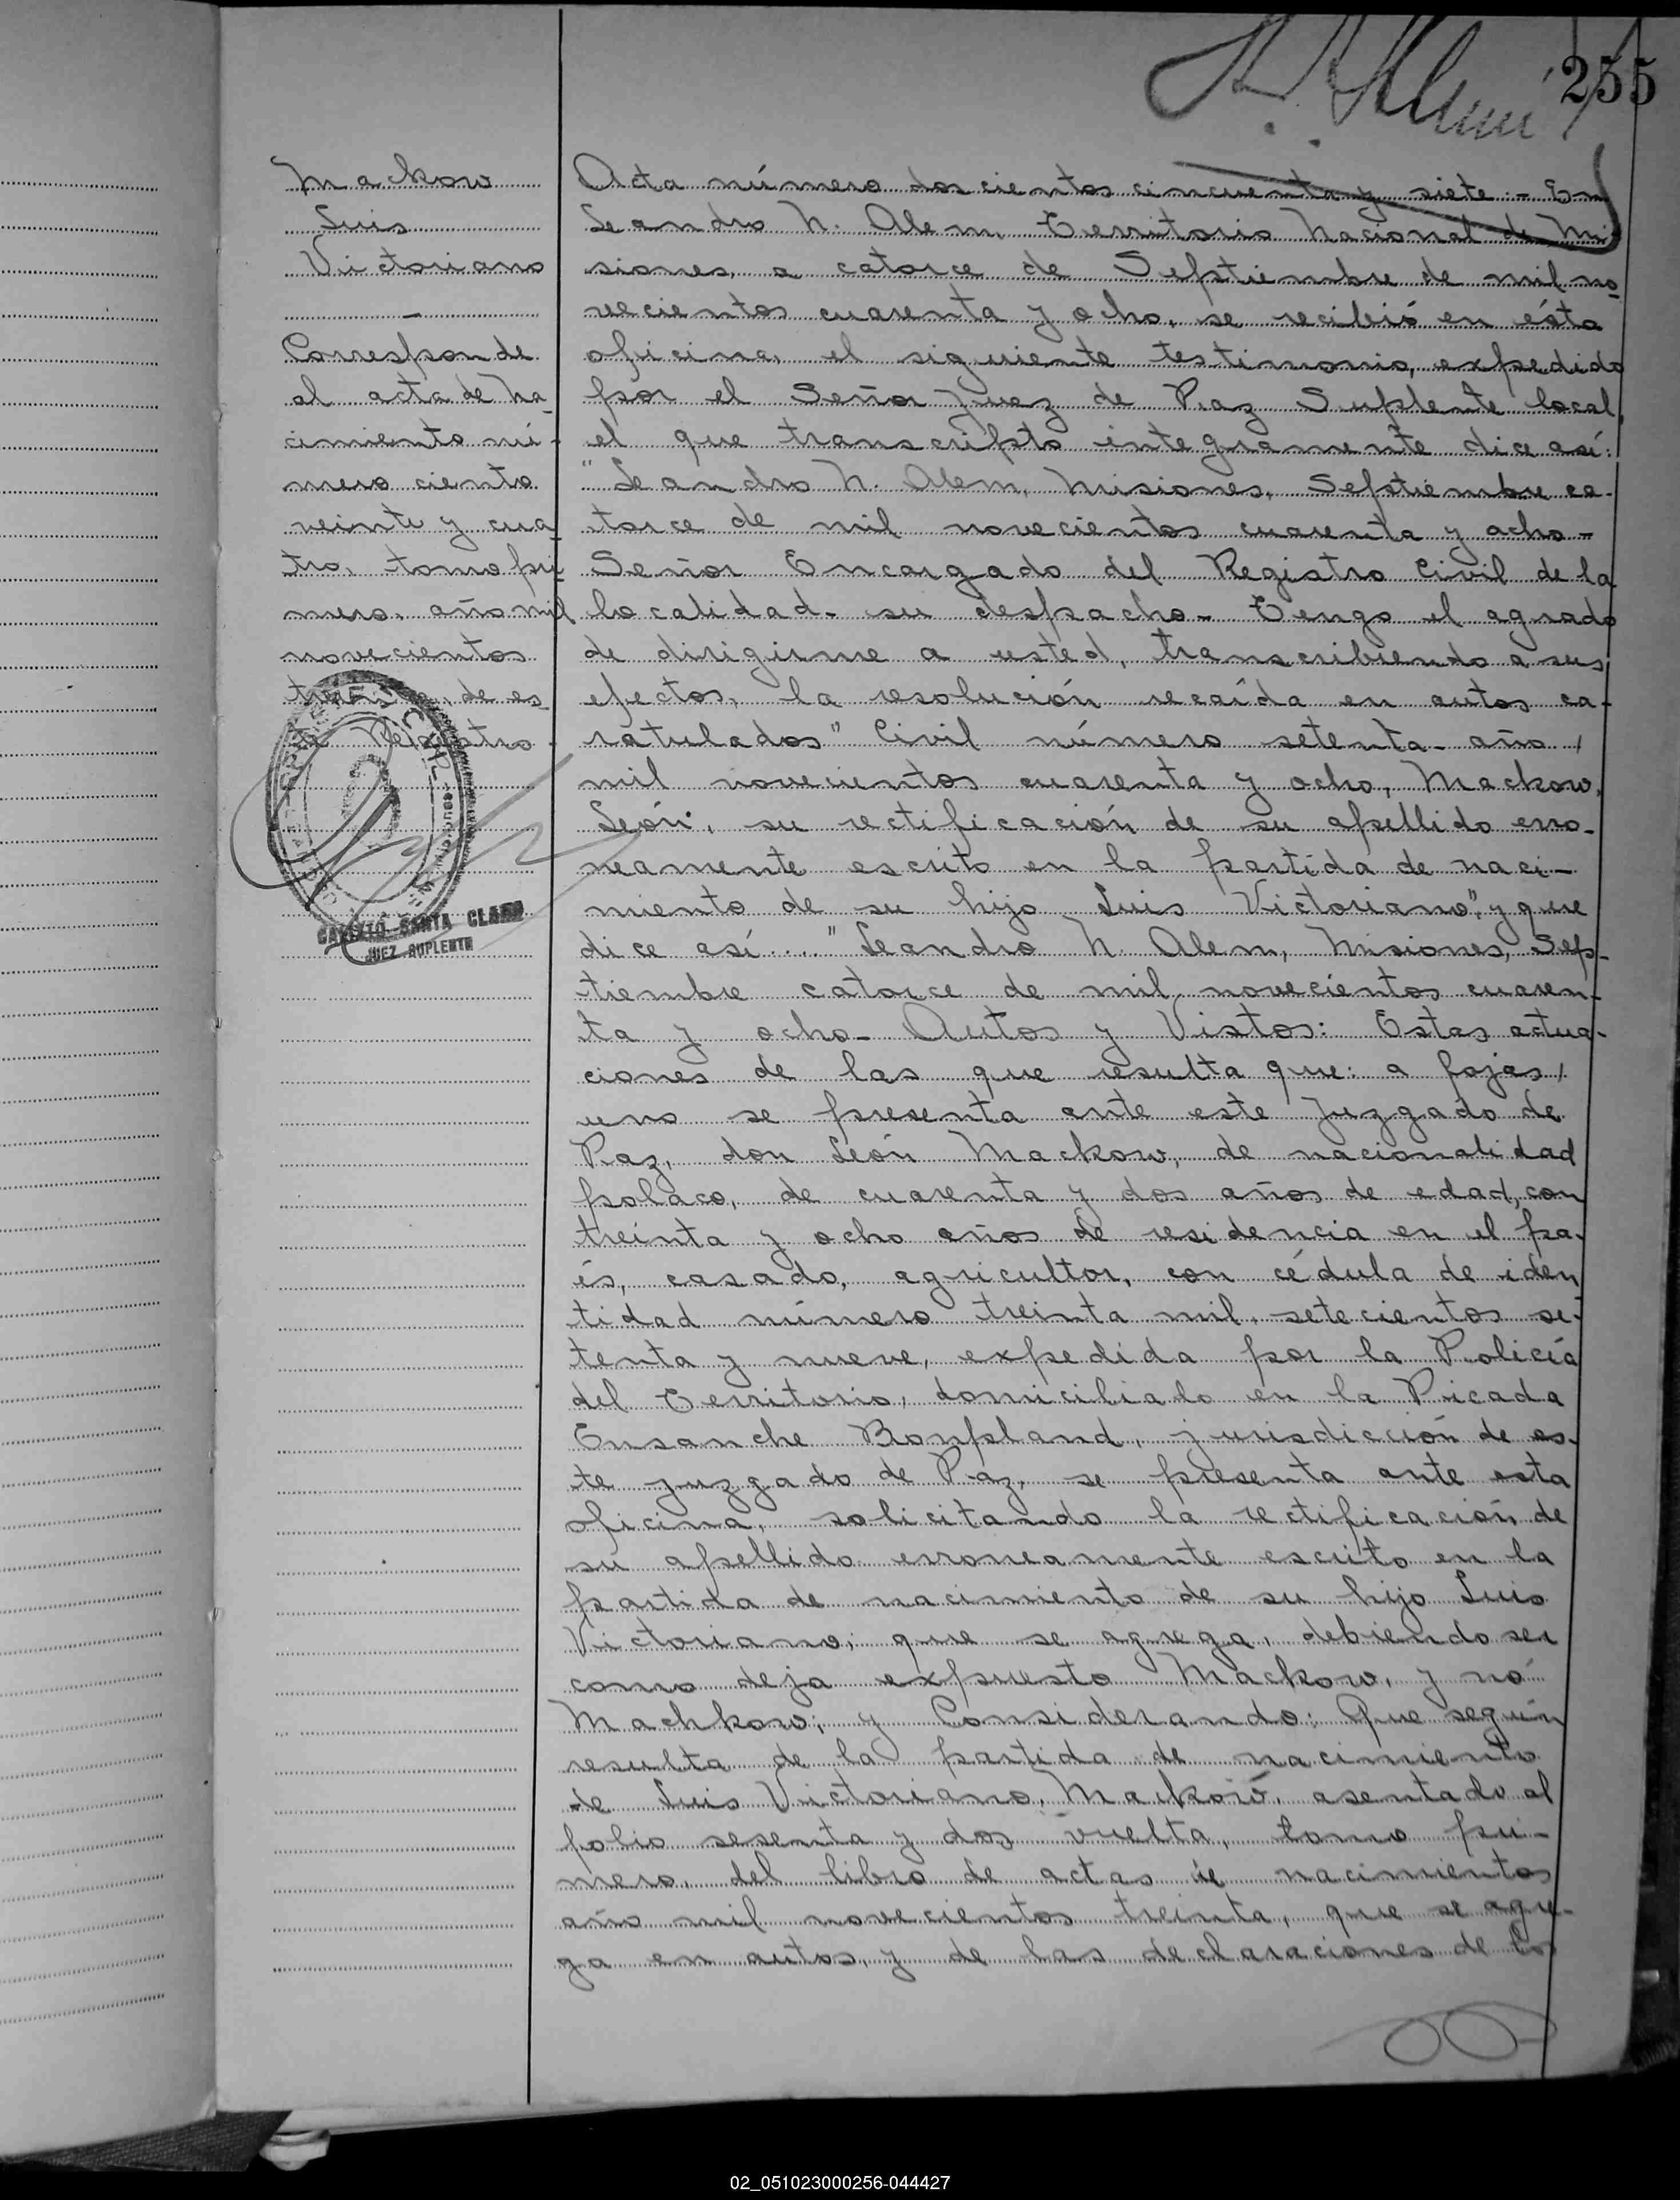 255
Mackow
Luis
Victoriano
-
Corresponde
al acta de na-
cimiento nú-
mero ciento
veinte y cua-
tro, tomo pri-
mero, año mil
novecientos
treinta, de es-
te Registro.
CALIXTO SANTA CLARA
JUEZ SUPLENTE
Acta número doscientos cincuenta y siete - En
Leandro N. Alem, Territorio Nacional de Mi-
siones, a catorce de Septiembre de mil no-
vecientos cuarenta y ocho, se recibió en ésta
oficina, el siguiente testimonio, expedido
por el Señor Juez de Paz Suplente local,
el que transcripto integramente dice así:
"Leandro N. Alem, Misiones, Septiembre ca-
torce de mil novecientos cuarenta y ocho-
Señor Encargado del Registro Civil de la
localidad- su despacho- Tengo el agrado
de dirigirme a usted, transcribiendo a sus
efectos, la resolución recaída en autos ca-
ratulados "Civil número setenta- año /
mil novecientos cuarenta y ocho, Mackow,
León, su rectificación de su apellido erro-
neamente escrito en la partida de naci-
miento de su hijo Luis Victoriano", y que
dice así...." Leandro N. Alem, Misiones, Sep-
tiembre catorce de mil novecientos cuaren-
ta y ocho- Autos y Vistos: Estas actua-
ciones de las que resulta que: a fojas /
uno se presenta ante este Juzgado de
Paz, don León Mackow, de nacionalidad
polaco, de cuarenta y dos años de edad, con
treinta y ocho años de residencia en el pa-
ís, casado, agricultor, con cédula de iden
tidad número treinta mil setecientos se-
tenta y nueve, expedida por la Policía
del Territorio, domiciliado en la Picada
Ensanche Bonpland, jurisdicción de es-
te juzgado de Paz, se presenta ante esta
oficina, solicitando la rectificación de
su apellido erroneamente escrito en la
partida de nacimiento de su hijo Luis
Victoriano; que se agrega, debiendo ser
como deja expuesto Mackow, y nó
Machkow; y Considerando: Que según
resulta de la partida de nacimiento
de Luis Victoriano, Mackow, asentado al
folio sesenta y dos vuelta, tomo pri-
mero, del libro de actas de nacimientos
año mil novecientos treinta, que se agre-
ga en autos, y de las declaraciones de los
02_051023000256-044427